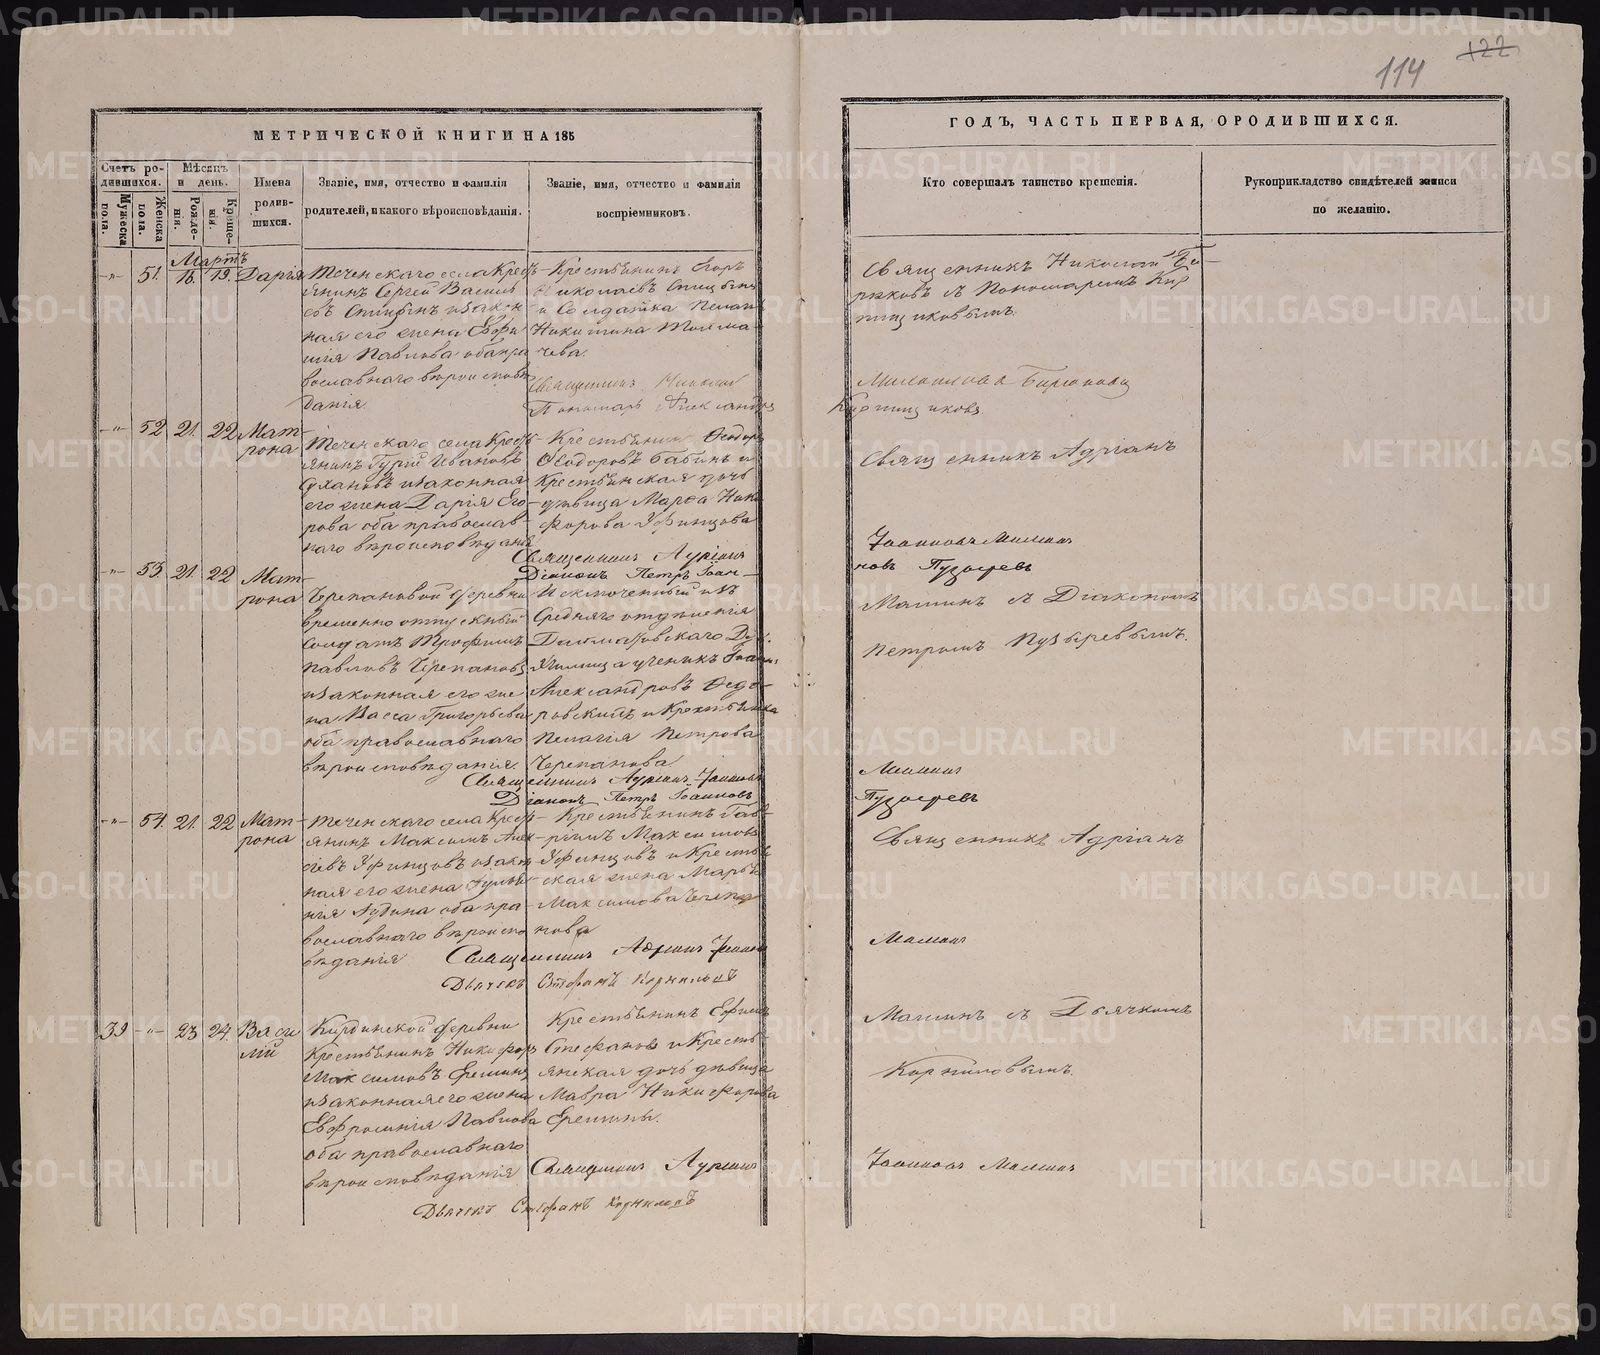 114
122
МЕТРИЧЕСКОЙ КНИГИ НА 185
ГОДЪ, ЧАСТЬ ПЕРВАЯ, О РОДИВШИХСЯ.
Счетъ родившихся.
Мужеска пола.
Женска пола.
Мѣсяцъ и день.
Рожденія.
Крещенія.
Имена родившихся.
Званіе, имя, отчество и фамилія
родителей, и какого вѣроисповѣданія.
Званіе, имя, отчество и фамилія
воспріемниковъ.
Кто совершалъ таинство крещенія.
Рукоприкладство свидѣтелей записи
по желанію.
Мартъ
51. 18. 19. Дарія
Теченскаго села Кресть
янинъ Сергей Василь
евъ Спицынъ и закон
ная его жена Евфи
мія Павлова оба пра
вославнаго вѣроисповѣ
данія.
Крестьянинъ Егоръ
Николаевъ Спицынъ
и Солдатка Пелагія
Никитина Толма
чева.
Священникъ Николай
Пономарь Александръ
Священникъ Николай Би
рюковъ съ Пономаремъ Кир
пищиковымъ.
Милославъ Бирюковъ
Кирпищиковъ
52 21. 22 Мат
рона
Теченскаго села Кресть
янинъ Гурій Ивановъ
и законная
его жена Дарія Его
рова оба православ
наго вѣроисповѣданія
Крестьянинъ Ѳеодоръ
Ѳеодоровъ Бабинъ и
Крестьянская дочь
дѣвица Марѳа Ники
форова Уфинцова
Священникъ Адріанъ
Діаконъ Петръ Іоан
Священникъ Адріанъ
Іоанновъ Маминъ
новъ Пузыревъ
53. 21. 22 Мат
рона
Черепановой деревни
временно отпускный
Солдатъ Трофимъ
Павловъ Черепановъ
и законная его же
на Васса Григорьева
оба православнаго
вѣроисповѣданія.
Исключенный изъ
Средняго отдѣленія
Далматовскаго Дух.
Училища ученикъ Іоаннъ
Александровъ Ѳедо
ровскій и Крестьянка
Пелагія Петрова
Черепанова
Священникъ Адріанъ Іоанновъ
Діаконъ Петръ Іоанновъ
Маминъ съ Діакономъ
Петромъ Пузыревымъ.
Маминъ
Пузыревъ
54. 21. 22 Мат
рона
Теченскаго села Кресть
янинъ Максимъ Алек
сіевъ Уфинцовъ и закон
ная его жена Іулiа
нія Аудина оба пра
вославнаго вѣроиспо
вѣданія
Крестьянинъ Гав
ріилъ Максимовъ
Уфинцовъ и Крестьян
ская жена Марья
Максимова Черепа
нова
Священникъ Адріанъ Іоанновъ
Дьячекъ Стефанъ Корниловъ
Священникъ Адріанъ
Маминъ
39 23 24. Васи
лій
Кирдинской деревни
Крестьянинъ Никифоръ
Максимовъ Ереминъ
и законная его жена
Евфросинія Павлова
оба православнаго
вѣроисповѣданія.
Крестьянинъ Ефимъ
Стефановъ и Кресть
янская дочь дѣвица
Мавра Никифорова
Еремины.
Священникъ Адріанъ
Дьячекъ Стефанъ Корниловъ
Маминъ съ Дьячкомъ
Корниловымъ.
Іоанновъ Маминъ
METRIKI.GASO-URAL.RU